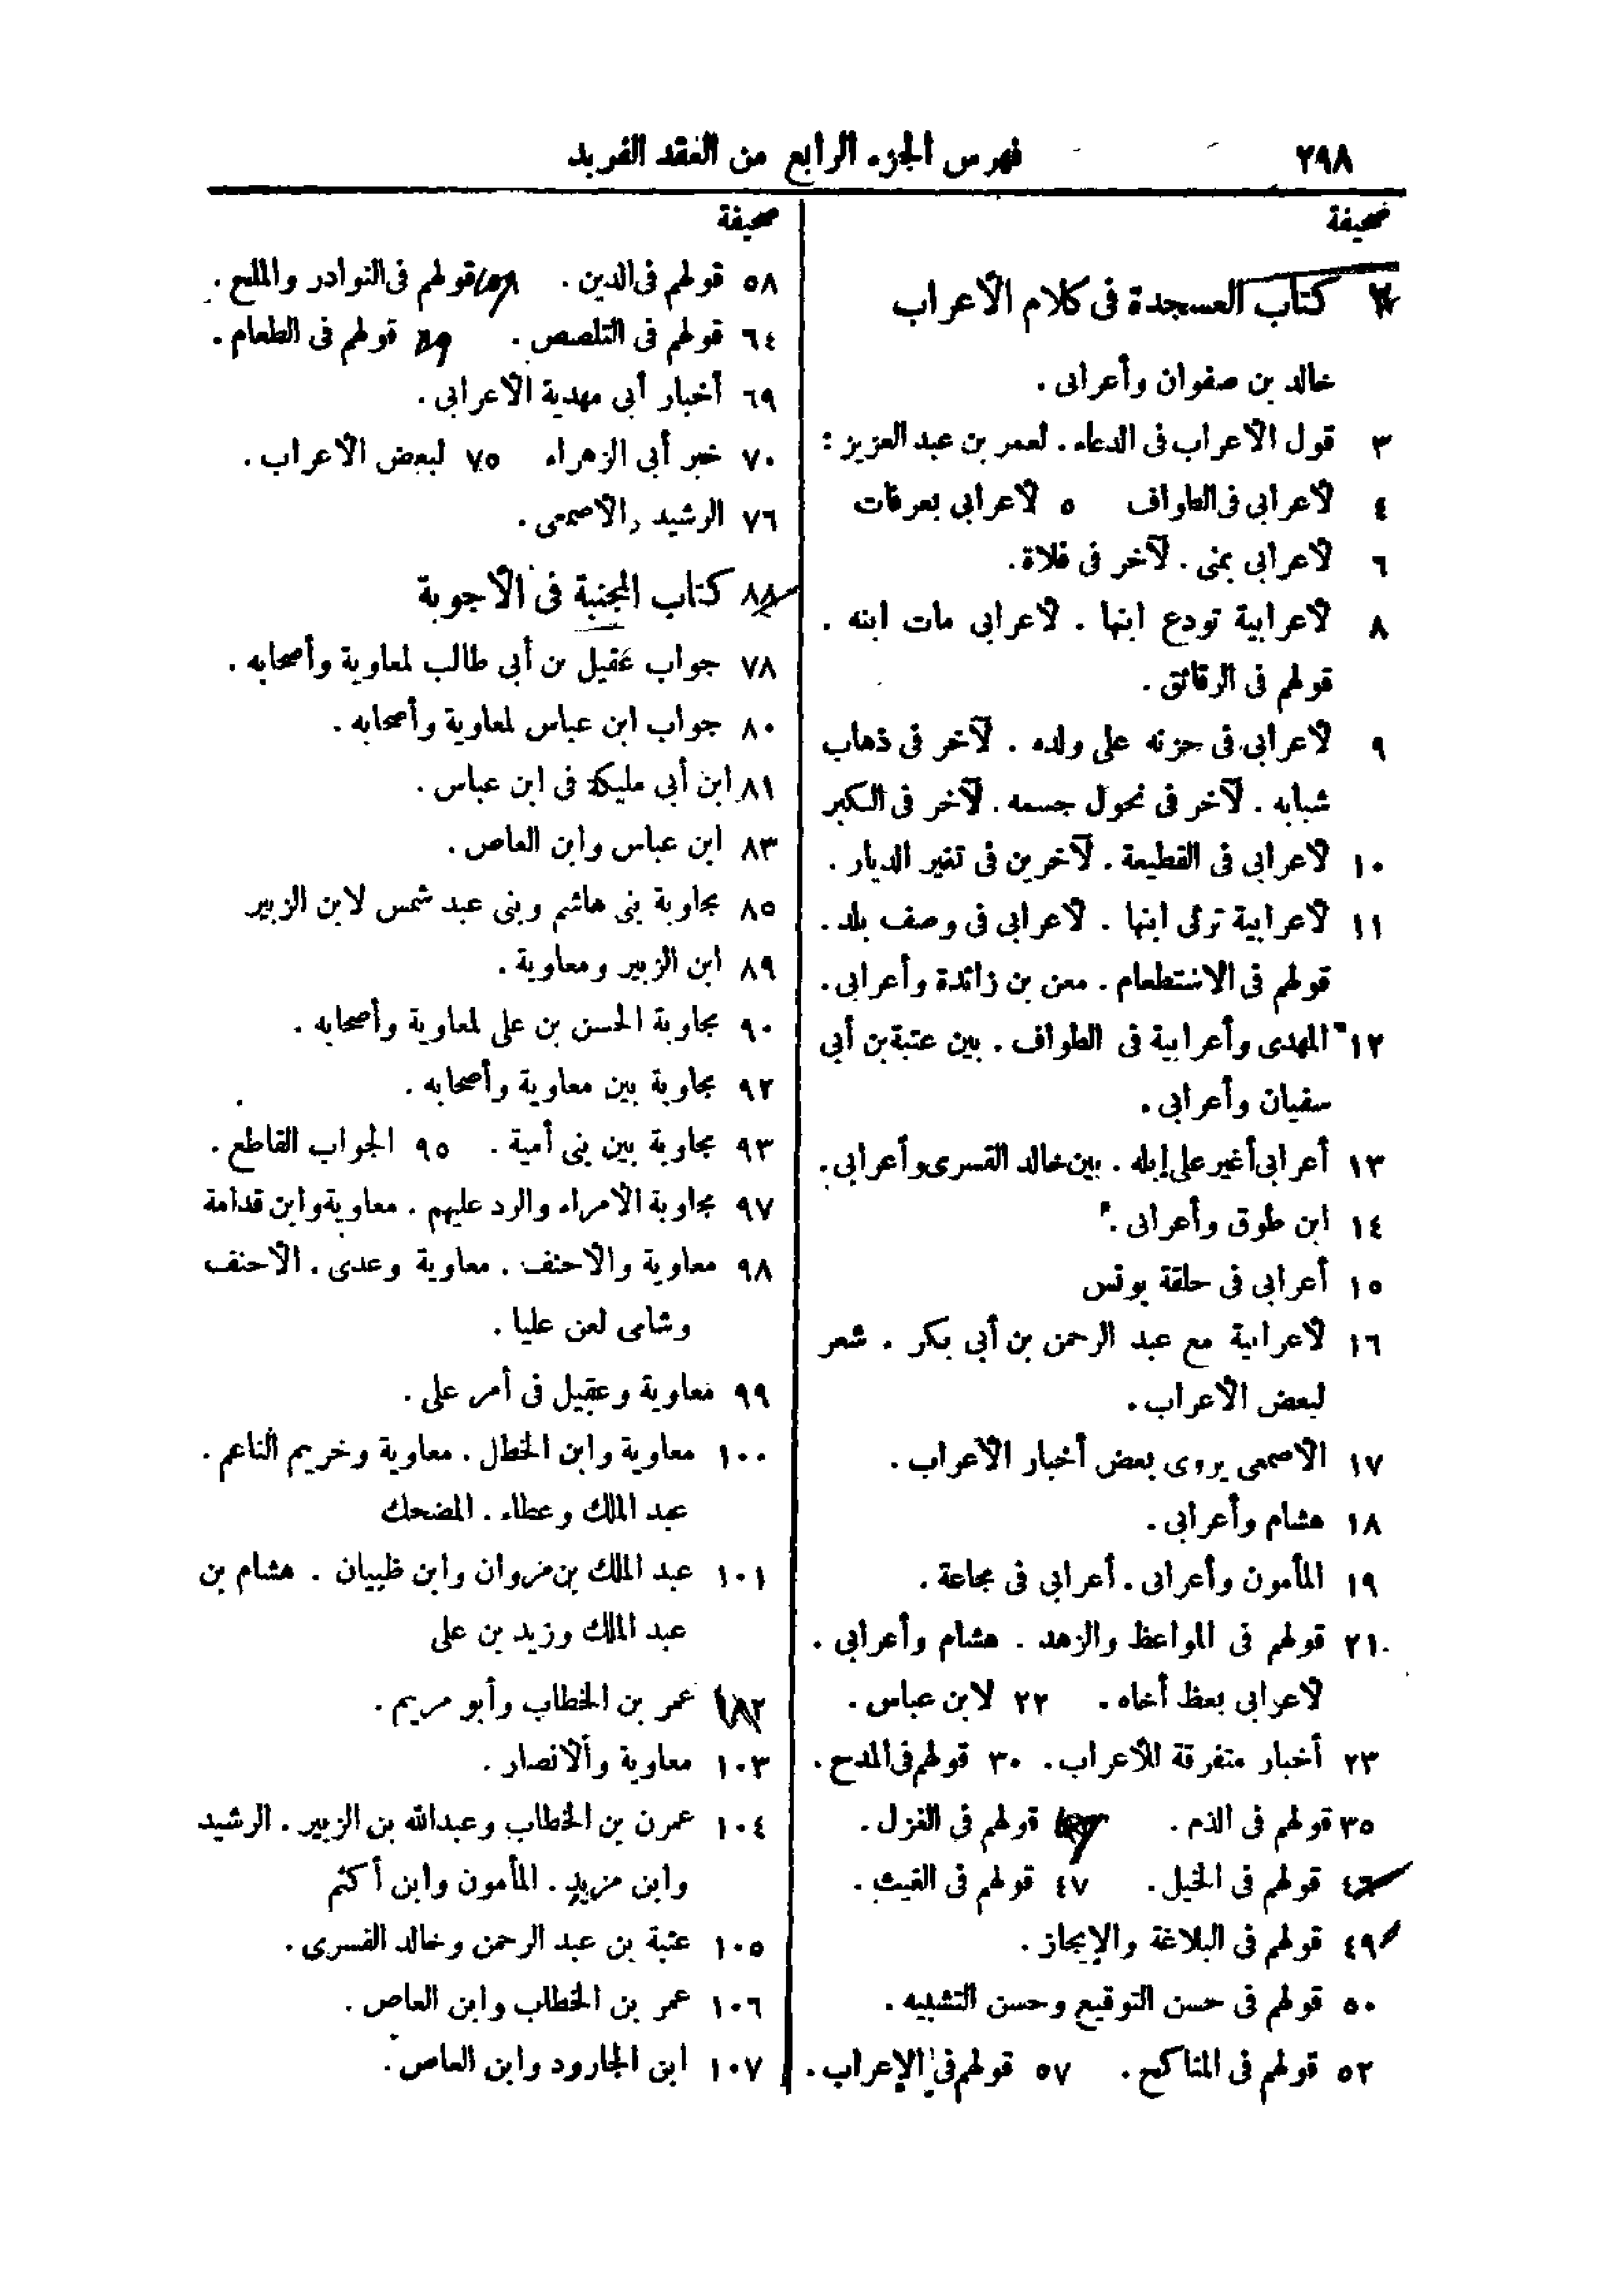 ٢٩٨ فهرس الجزء الرابع من العقد الفريد
صحيفة
كتاب العسجدة فى كلام الأعراب
خالد بن صفوان وأعرابى .
٣ قول الأعراب فى الدعاء . لعمر بن عبد العزيز :
٤ لأعرابي فى الطواف ٥ لأعرابي بعرفات
٦ لأعرابى بمنى . لآخر فى فلاة .
٨ لأعرابية تودع ابنها . لأعرابى مات ابنه .
قولهم فى الرقائق .
٩ لأعرابى فى حزنه على ولده . لآخر فى ذهاب
شبابه . لآخر فى نحول جسمه . لآخر فى الكبر
١٠ لأعرابى فى القطيعة . لآخرين فى تغير الديار .
١١ لأعرابية ترثى ابنها . لأعرابى فى وصف بلد .
قولهم فى الاستطعام . معن بن زائدة وأعرابى .
١٢ المهدى وأعرابية فى الطواف . بين عتبة بن أبى
سفيان وأعرابى .
١٣ أعرابى أغير على إبله . بين خالد القسرى وأعرابى .
١٤ ابن طوق وأعرابى .
١٥ أعرابى فى حلقة يونس
١٦ لأعرابية مع عبد الرحمن بن أبى بكر . شعر
لبعض الأعراب .
١٧ الأصمعى يروى بعض أخبار الأعراب .
١٨ هشام وأعرابى .
١٩ المأمون وأعرابى . أعرابى فى مجاعة .
٢١ قولهم فى المواعظ والزهد . هشام وأعرابى .
لأعرابى يعظ أخاه . ٢٢ لابن عباس .
٢٣ أخبار متفرقة للأعراب . ٣٠ قولهم فى المدح .
٣٥ قولهم فى الذم . قولهم فى الغزل .
٤٦ قولهم فى الخيل . ٤٧ قولهم فى الغيث .
٤٩ قولهم فى البلاغة والإيجاز .
٥٠ قولهم فى حسن التوقيع وحسن التشبيه .
٥٢ قولهم فى المناكح . ٥٧ قولهم فى الإعراب .
صحيفة
٥٨ قولهم فى الدين . قولهم فى النوادر والملح .
٦٤ قولهم فى التلصص . قولهم فى الطعام .
٦٩ أخبار أبى مهدية الأعرابى .
٧٠ خبر أبى الزهراء ٧٥ لبعض الأعراب .
٧٦ الرشيد والأصمعى .
٨٨ كتاب المجنبة فى الأجوبة
٧٨ جواب عقيل بن أبى طالب لمعاوية وأصحابه .
٨٠ جواب ابن عباس لمعاوية وأصحابه .
٨١ ابن أبى مليكة فى ابن عباس .
٨٣ ابن عباس وابن العاص .
٨٥ مجاوبة بنى هاشم وبنى عبد شمس لابن الزبير
٨٩ ابن الزبير ومعاوية .
٩٠ مجاوبة الحسن بن على لمعاوية وأصحابه .
٩٢ مجاوبة بين معاوية وأصحابه .
٩٣ مجاوبة بين بنى أمية . ٩٥ الجواب القاطع .
٩٧ مجاوبة الأمراء والرد عليهم . معاوية وابن قدامة
٩٨ معاوية والأحنف . معاوية وعدى . الأحنف
وشامى لعن عليا .
٩٩ معاوية وعقيل فى أمر على .
١٠٠ معاوية وابن الخطل . معاوية وخريم الناعم .
عبد الملك وعطاء . المضحك
١٠١ عبد الملك بن مروان وابن ظبيان . هشام بن
عبد الملك وزيد بن على
عمر بن الخطاب وأبو مريم .
١٠٣ معاوية والأنصار .
١٠٤ عمرن بن الخطاب وعبدالله بن الزبير . الرشيد
وابن مزيد . المأمون وابن أكثم
١٠٥ عتبة بن عبد الرحمن وخالد القسرى .
١٠٦ عمر بن الخطاب وابن العاص .
١٠٧ ابن الجارود وابن العاص .